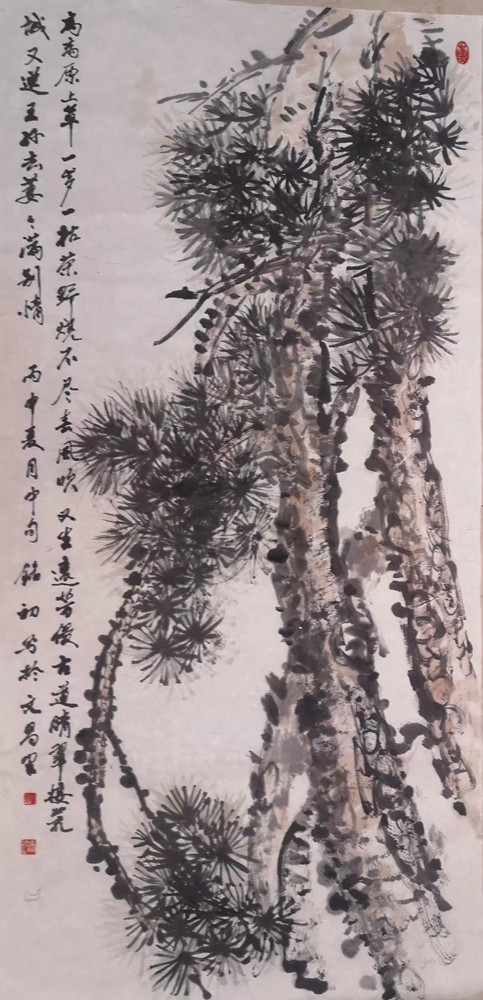 高高原上草一岁一枯荣野烧不尽春风吹又生遠芳侵古道晴翠接荒
城又送王孙去萋々满别情 丙申夏月中旬 铭初写於文昌里